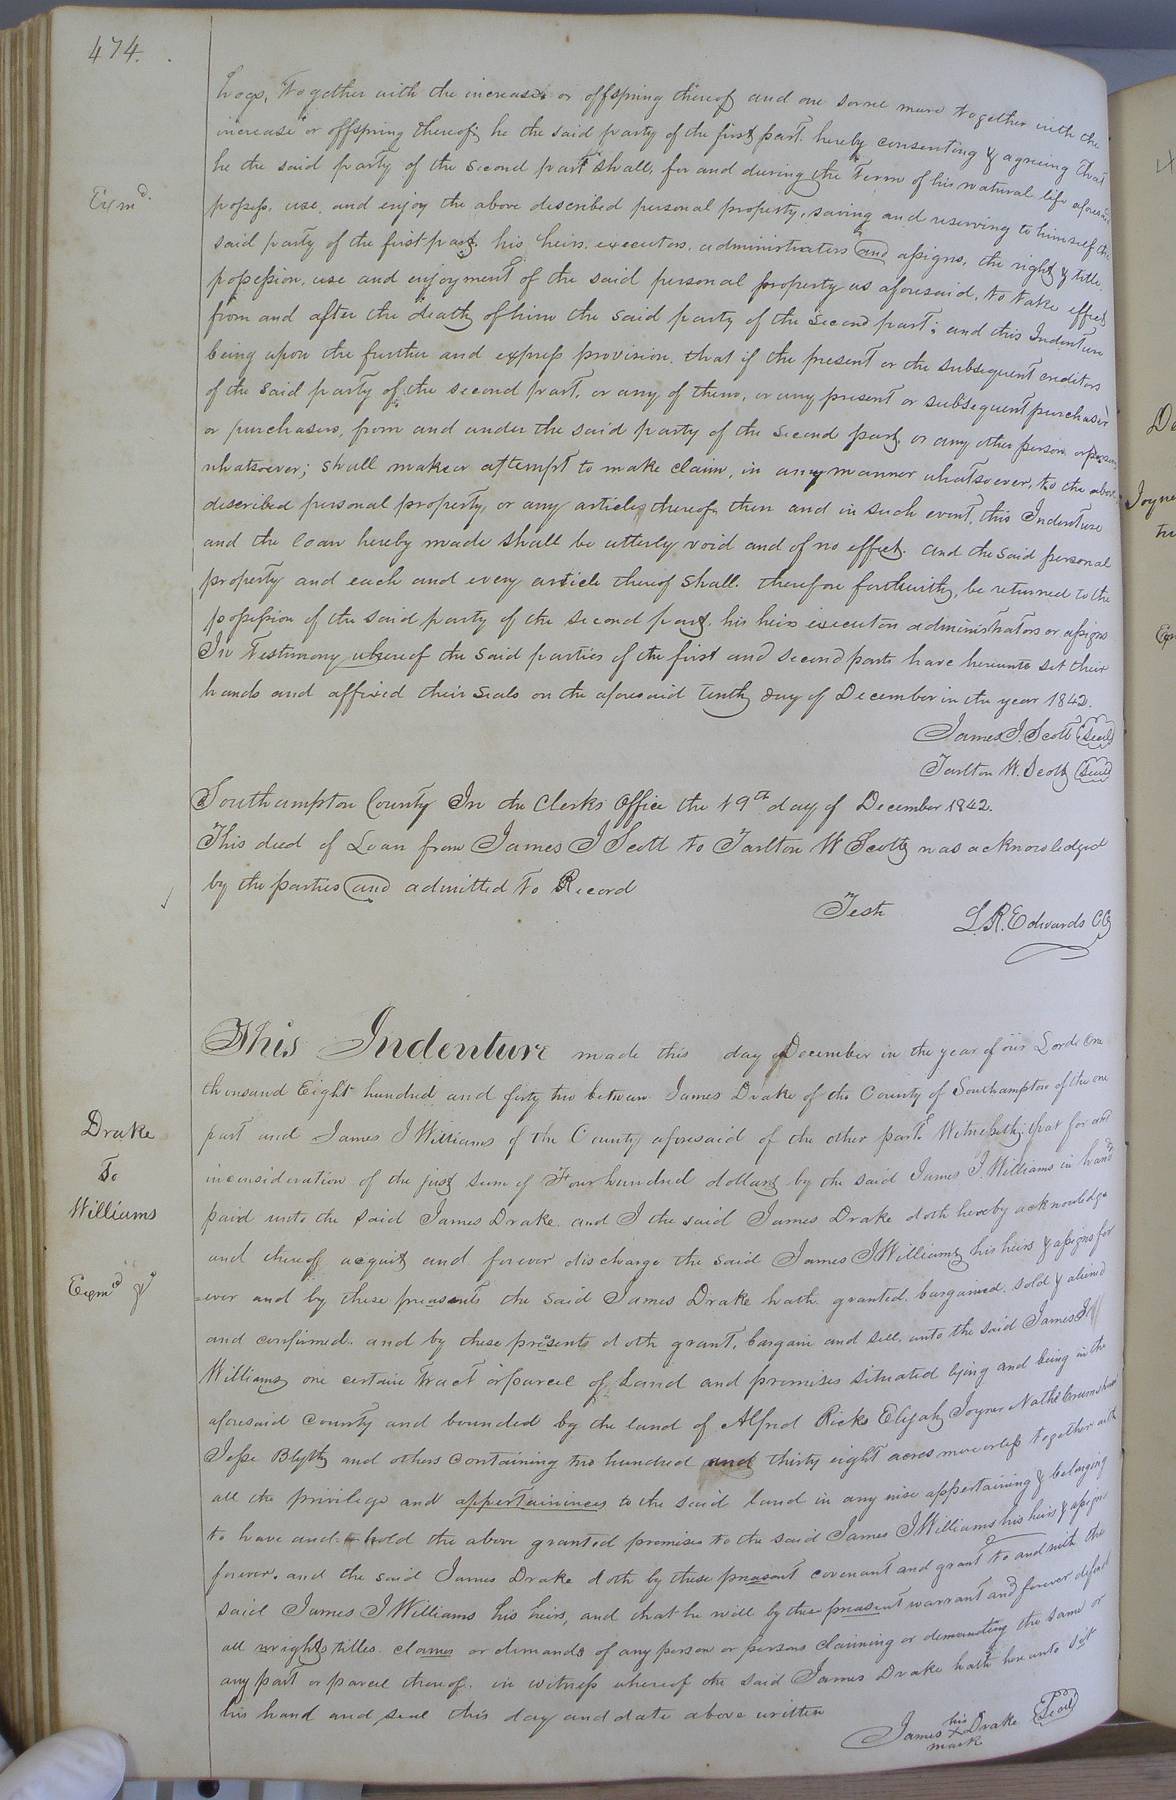 474.
hogs, together with the increase or offspring thereof and one sorrel mare together with the
increase or offspring thereof, he the said party of the first part hereby consenting & agreeing that
Exmd.
he the said party of the second part shall, for and during the term of his natural life aforesaid
possess, use, and enjoy the above described personal property, saving and reserving to himself the
said party of the first part, his heirs, executors, administrators and assigns, the right & title,
possession, use and enjoyment of the said personal property as aforesaid, to take effect
from and after the death of him the said party of the second part; and this Indenture
being upon the further and express provision, that if the present or the subsequent creditors
of the said party of the second part, or any of them, or any present or subsequent purchaser
or purchasers, from and under the said party of the second part, or any other person or persons
whatsoever; shall make or attempt to make claim, in any manner whatsoever, to the above
described personal property, or any articles thereof, then and in such event, this Indenture
and the loan hereby made shall be utterly void and of no effect. and the said personal
property and each and every article thereof shall therefore forthwith, be returned to the
possession of the said party of the second part, his heirs executors administrators or assigns
In Testimony whereof the said parties of the first and second parts have hereunto set their
hands and affixed their seals on the aforesaid tenth day of December in the year 1842.
James J. Scott Seal
Tarlton W. Scott Seal
Southampton County In the Clerks Office the 19th day of December 1842.
This deed of Loan from James J Scott to Tarlton W Scott was acknowledged
by the parties and admitted to Record
Teste L. R. Edwards CC
This Indenture made this day of December in the year of our Lorde One
thousand Eight hundred and forty two between James Drake of the County of Southampton of the one
Drake
To
Williams
part and James J Williams of the County aforesaid of the other part. Witnesseth, that for and
inconsideration of the just sum of Four hundred dollars by the said James J. Williams in hand
paid unto the said James Drake and I the said James Drake doth hereby acknowledge
and thereof acquit and forever discharge the said James J Williams his heirs & assigns for
Exmd
=ever and by these preasents the said James Drake hath granted, bargained, sold & aliened
and confirmed. and by these presents doth grant, bargain and sell unto the said James J
Williams one certain Tract or parcel of Land and premises situated lying and being in the
aforesaid County and bounded by the land of Alfred Ricks Elijah Joyner Nathl
Jesse Blyth and others Containing two hundred and thirty eight acres more or less together with
all the privilege and appertainences to the said land in any wise appertaining & belonging
to have and to hold the above granted premises to the said James J Williams his heirs & assigns
forever. and the said James Drake doth by these preasent covenant and grant to and with the
said James J Williams his heirs, and that he will by these preasent warrant and forever defend
all wrights titles clames or demands of any person or persons claiming or demanding the same or
any part or parcel thereof. in witness whereof the said James Drake hath here unto set
his hand and seal this day and date above written
James his x mark Drake Seal